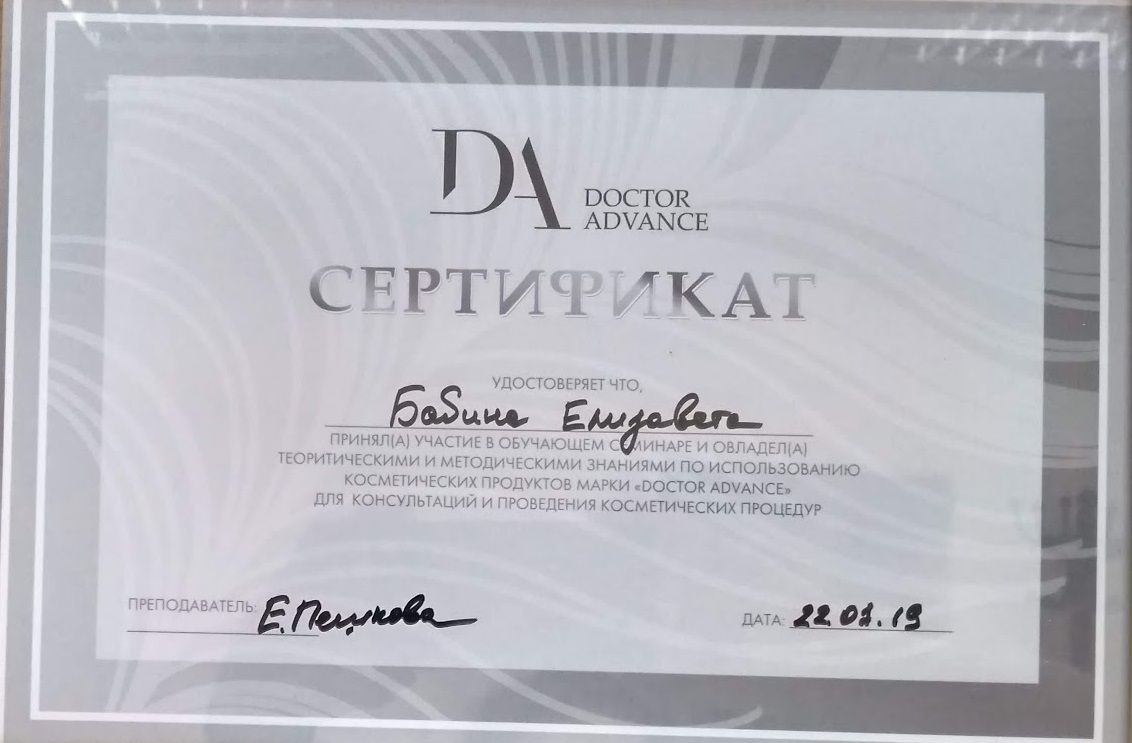 DA DOCTOR
ADVANCE
СЕРТИФИКАТ
УДОСТОВЕРЯЕТ ЧТО,
Бабина Елизавета
ПРИНЯЛ(А) УЧАСТИЕ В ОБУЧАЮЩЕМ СЕМИНАРЕ И ОВЛАДЕЛ(А)
ТЕОРИТИЧЕСКИМИ И МЕТОДИЧЕСКИМИ ЗНАНИЯМИ ПО ИСПОЛЬЗОВАНИЮ
КОСМЕТИЧЕСКИХ ПРОДУКТОВ МАРКИ «DOCTOR ADVANCE»
ДЛЯ КОНСУЛЬТАЦИЙ И ПРОВЕДЕНИЯ КОСМЕТИЧЕСКИХ ПРОЦЕДУР
ПРЕПОДАВАТЕЛЬ: Е. Пешкова
ДАТА: 22.01.19